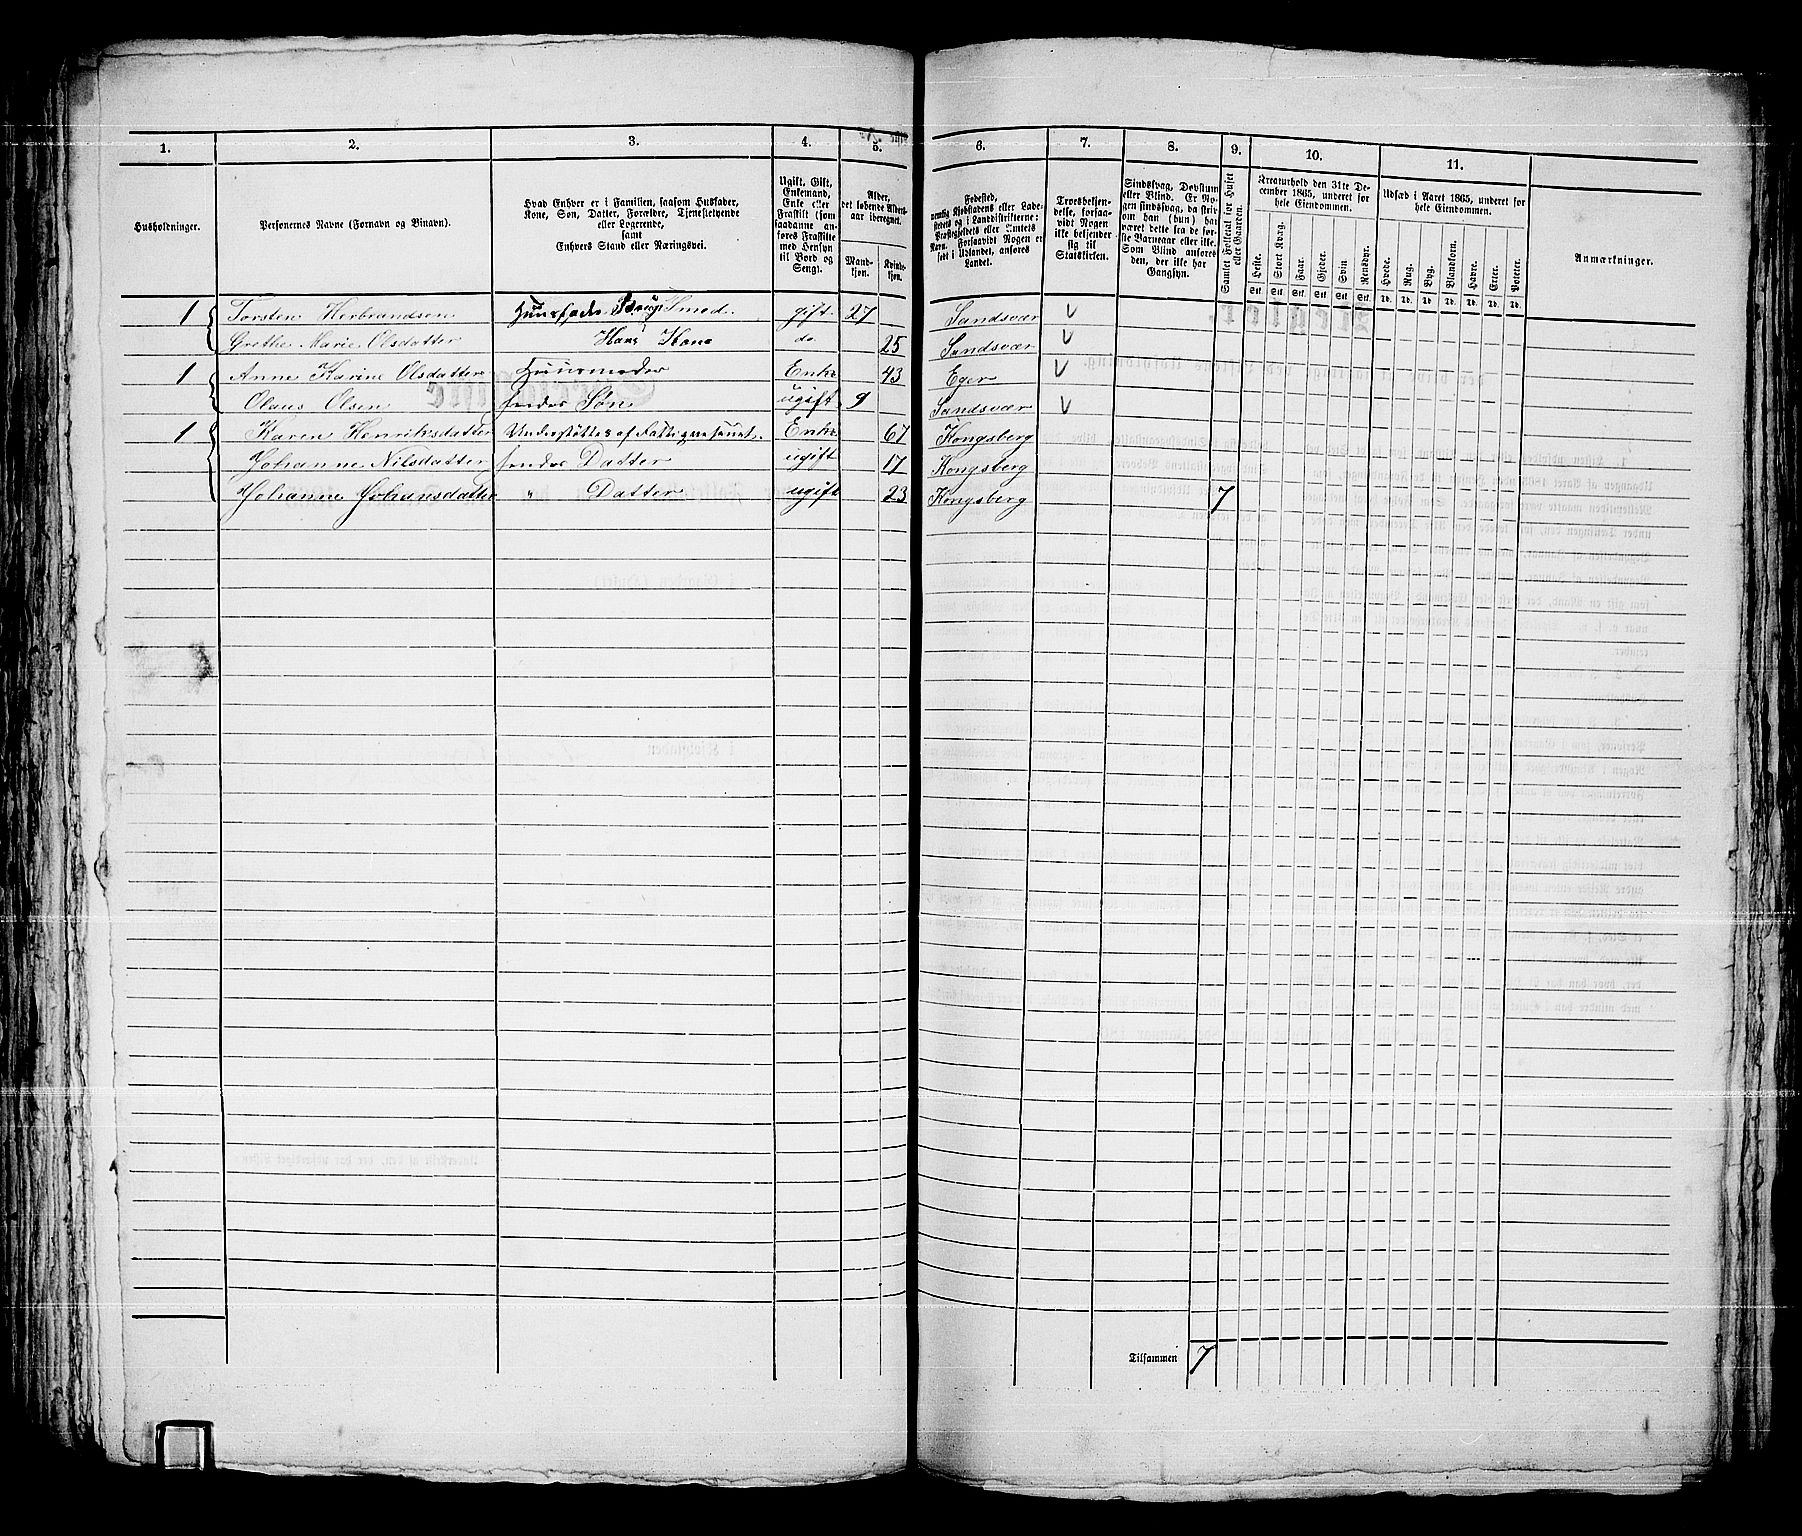 1. 2. 3. 4. 5. 6. 7. 8. 9. 10. 11.
Husholdninger.
Personernes Navne (Fornavn og Binavn).
Hvad Enhver er i Familien, saasom Husfader,
Kone, Søn, Datter, Forældre, Tjenestetyende
eller Logerende,
samt
Enhvers Stand eller Næringsvei.
Ugift, Gift,
Enkemand,
Enke eller
Fraskilt (som
saadanne an-
føres Fraskilte
med Hensyn
til Bord og
Seng).
Alder,
det løbende Alders-
aar iberegnet.
Mand-
kjøn.
Kvinde-
kjøn.
Fødested,
nemlig Kjøbstadens eller Lade-
stedets og i Landdistrikterne:
Præstegjeldets eller Amtets
Navn. Forsaavidt Nogen er
født i Udlandet, anføres
Landet.
Troesbekjen-
delse, forsaa-
vidt Nogen
ikke bekjender
sig til
Statskirken.
Sindssvag, Døvstum
eller Blind. Er No-
gen sindssvag, da skri-
ves om han (hun) har
været dette fra de før-
ste Barneaar eller ikke.
Som Blind ansøres
den, der ikke har
Gangsyn.
Samlet Folketal for Huset
eller Gaarden.
Kreaturhold den 31te De-
cember 1865, underet for
hele Eiendommen.
Heste. Stort Kvæg. Faar. Gjeder. Svin Rensdyr.
Stk. Stk. Stk. Stk. Stk. Stk.
Udsæd i Aaret 1865, underet for
hele Eiendommen.
Hvede. Rug. Byg. Blandkorn. Havre. Erter. Poteter.
Td. Td. Td. Td. Td. Td. Td.
Anmærkninger.
1 Torsten Herbrandsen Huusfader Smed. gift 27 Sandsvær
Grethe Marie Olsdatter Hans Kone do 25 Sandsvær
1 Anne Karine Olsdatter Huusmoder Enke 43 Eger
Olaus Olsen hendes Søn ugift 9 Sandsvær
1 Karen Henriksdatter Understøttes af Fattigvæsenet. Enke 67 Kongsberg
Johanne Nilsdatter hendes Datter ugift 17 Kongsberg
Johanne Johansdatter " Datter ugift 23 Kongsberg 7
Tilsammen 7